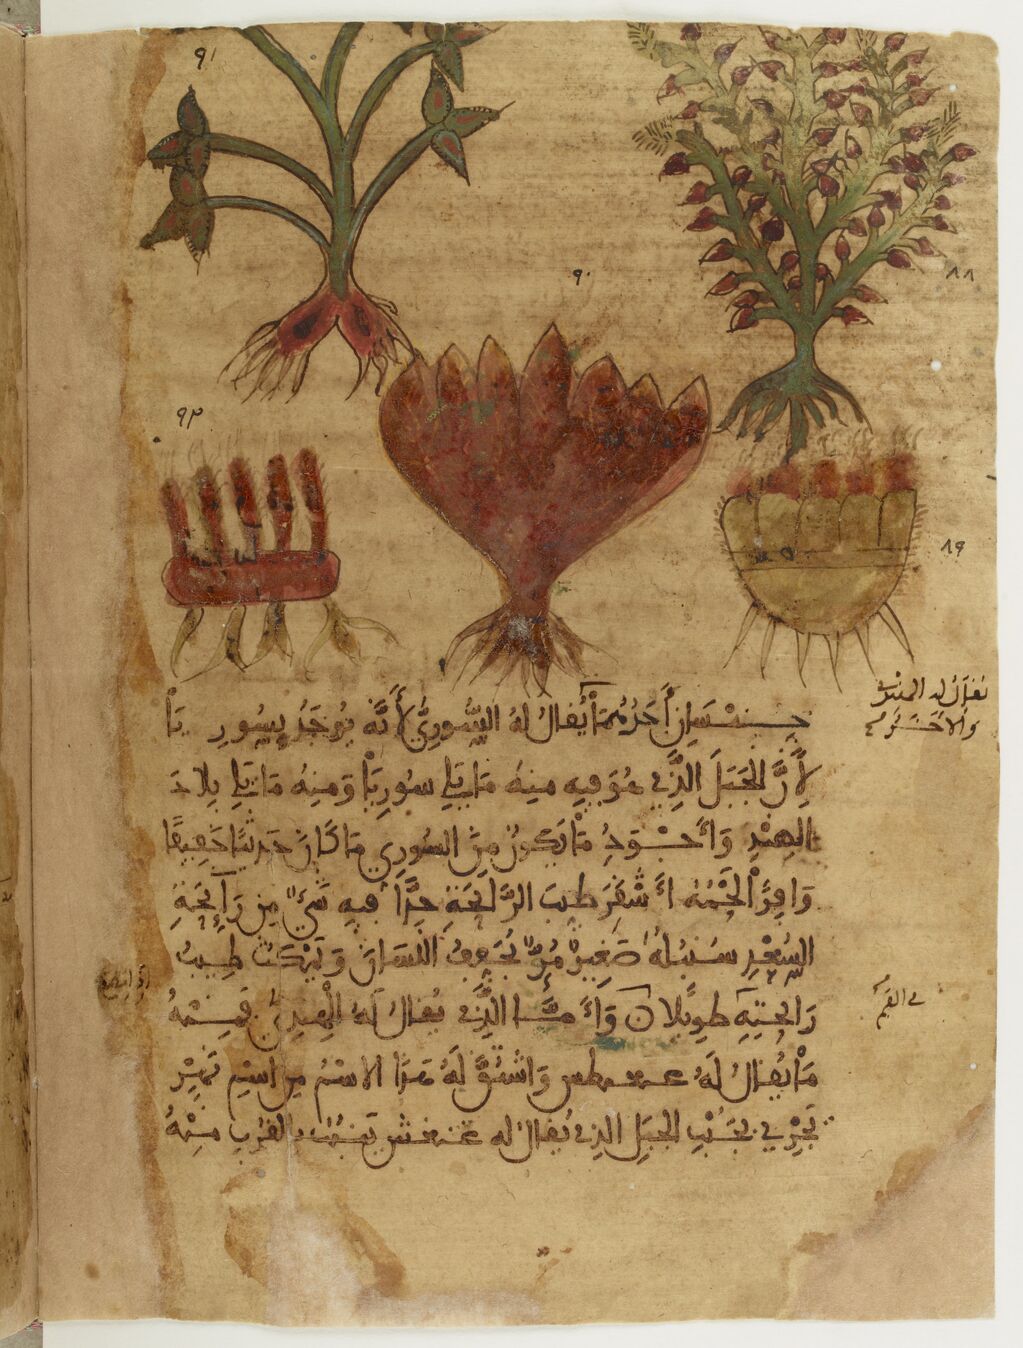 ٩١
٩٠
٨٨
٩٢
٨٩
يقال له الهندي
والاخر
جنسان أحدهما يقال له السُّورِيُّ لأَنَّه يُوجَدُ بِسُورِيَا
لِأَنَّ الجَبَلَ الَّذِي هُوَ فِيهِ مِنهُ مَا يَلِي سُورِيَا وَمِنهُ مَا يَلِي بِلَادَ
الهِنْدِ وَأَجْوَدُ مَا يَكُونُ مِنَ السُّورِي مَا كَانَ حَدِيثًا خَفِيفًا
وَافِرَ الْجُمَّةِ أَشْقَرَ طَيِّبَ الرَّائِحَةِ جِدًّا فِيهِ شَيْءٌ مِن رَائِحَةِ
السُّعْدِ سُنْبُلُهُ صَغِيرٌ مُرٌّ يُجَفِّفُ اللِّسَانَ وَيَمْكُثُ طِيبُ
رَائِحَتِهِ طَوِيلًا وَأَمَّا الَّذِي يُقَالُ لَهُ الْهِنْدِيُّ فَمِنْهُ
في الفم
مَا يُقَالُ لَهُ وَاشْتُقَّ لَهُ هَذَا الاسْمُ مِن اسْمِ نَهْرٍ
يَجْرِي بِجَنْبِ الجَبَلِ الذِي يُقَالُ له بالقُرْبِ مِنْهُ